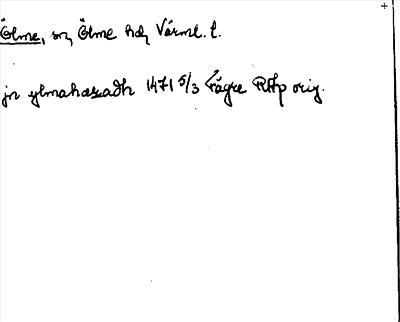 Ölme, sn, Ölme hd, Värml. l.
jn ylmahæradh 1471 5/3 Krågre RAp orig.